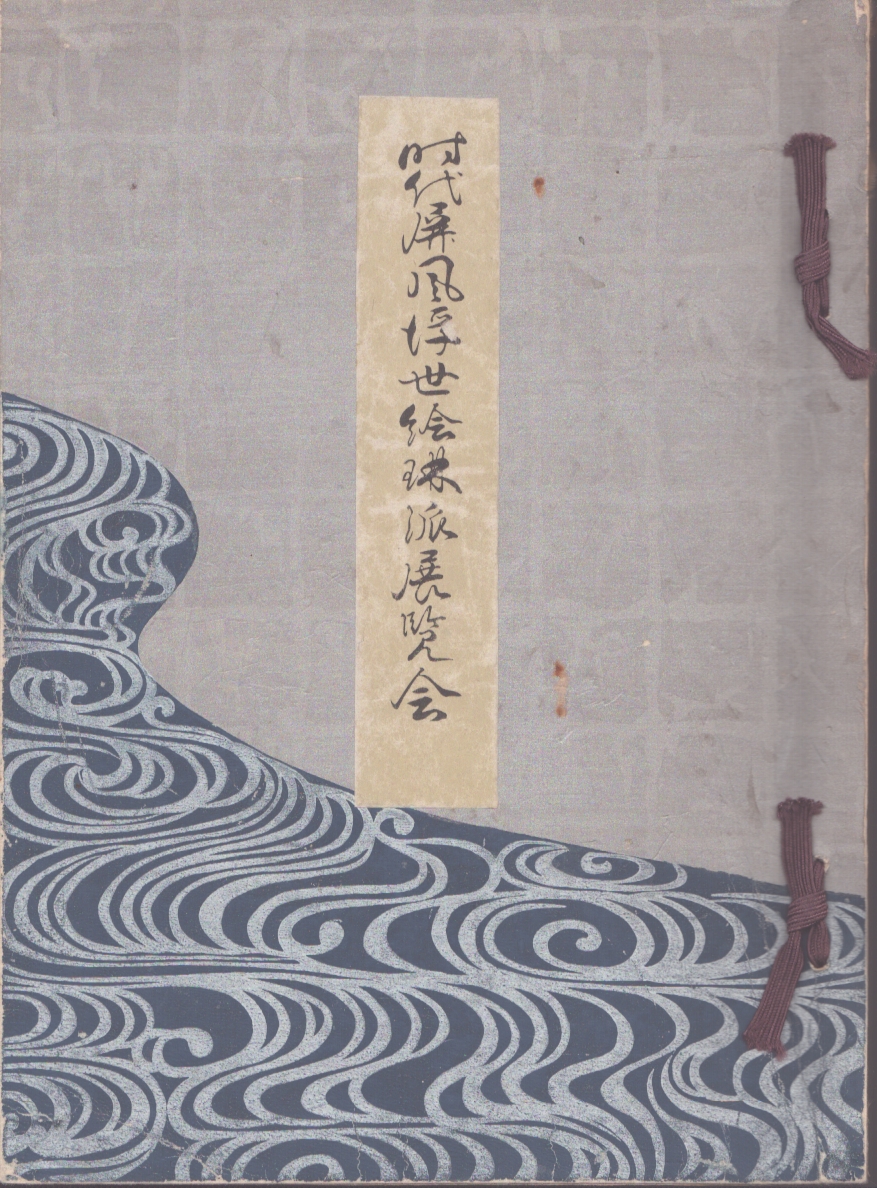 时代屏風浮世絵琳派展覧会